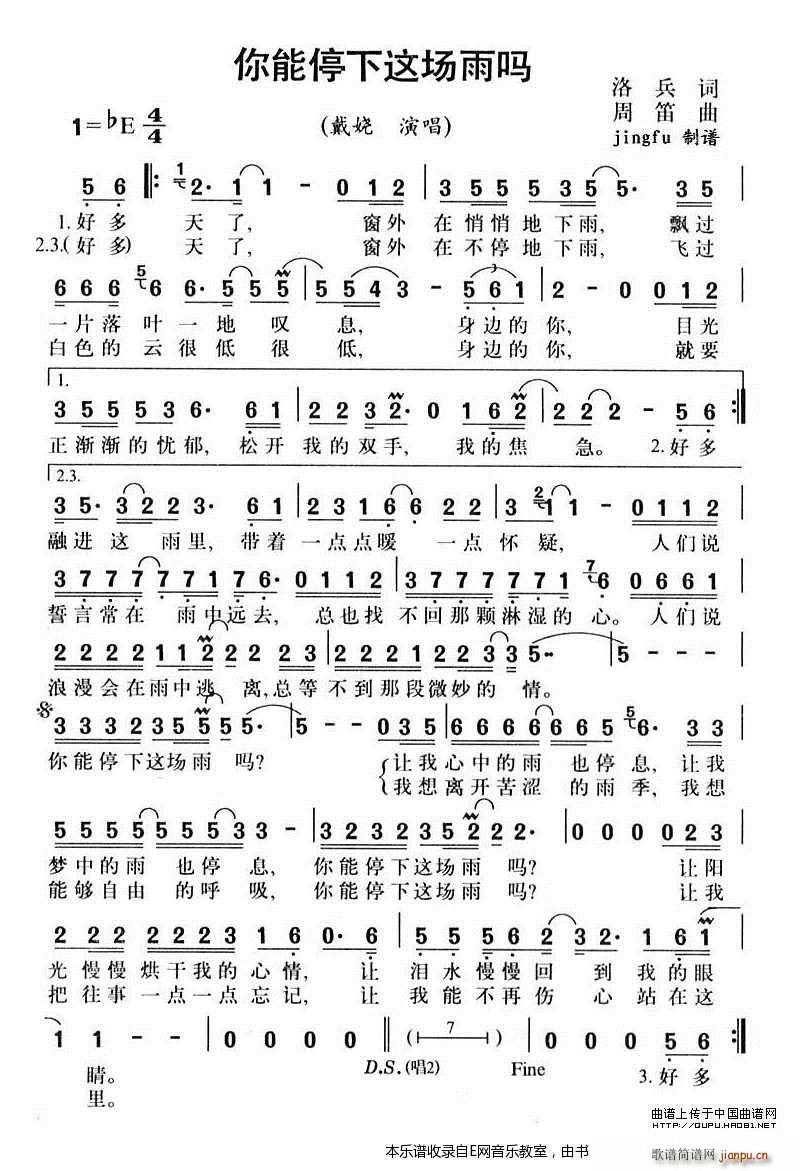 你能停下这场雨吗
洛兵 词
1=♭E 4/4 (戴娆 演唱) 周笛 曲
jingfu 制谱
5 6 ‖: 1 2· 1 1 - 0 1 2 | 3 5 5 5 5 3 5 5· 3 5 |
1.好多 天了, 窗外 在悄悄地下雨, 飘过
2.3.(好多) 天了, 窗外 在不停地下雨, 飞过
6 6 6 5 6 6· 5 5 5 | 5 5 4 3 - 5 6 1 | 2 - 0 0 1 2 |
一片落叶一地 叹 息, 身边的你, 目光
白色的云很低很 低, 身边的你, 就要
1.
3 5 5 5 3 6· 6 1 | 2 2 3 2· 0 1 6 2 | 2 - - 5 6 :‖
正渐渐的忧郁, 松开 我的双手, 我的焦 急。 2.好多
2.3.
3 5· 3 2 2 3· 6 1 | 2 3 1 6 6 2 2 1 2 | 3 2 1 1 - 0 1 1 2 |
融进这 雨里, 带着一点点暖 一点怀疑, 人们说
3 7 7 7 7 7 1 7 6· 0 1 1 2 | 3 1 1 1 1 1 7 1 7 6 0 6 6 1 |
誓言常在 雨中远去, 总也找 不回那颗淋湿的心。人们说
2 2 2 2 1 1 2 2 2 2 3 | 2 2 2 1 2 2 3 3 5· | 5 - - - |
浪漫会在雨中逃 离,总等 不到那段微妙的 情。
3 3 3 2 3 5 5 5 5· | 5 - 0 3 5 | 6 6 6 6 6 6 6 5 5 6· 3 3 |
你能停下这场雨 吗? 让我心中的雨 也停息, 让我
我想离开苦涩 的雨季, 我想
5 5 5 5 5 5 5 3 3 - | 3 2 3 2 3 5 2 2 2· | 0 0 0 0 2 3 |
梦中的雨 也停 息, 你能停下这场雨 吗? 让阳
能够自由 的呼 吸, 你能停下这场雨 吗? 让我
2 2 2 2 2 2 3 1 6 0· 6 | 5 5 5 5 2 3 2· 6 6 1 |
光慢慢烘干我的心情, 让 泪水慢慢回 到我的眼
把往事一点一点忘记, 让 我能不再伤 心站在这
1 1 - - | 0 0 0 0 | ( 7 ) | 0 0 0 5 6 :‖
D.S.(唱2) Fine
睛。 3.好多
里。
曲谱上传于中国曲谱网
HTTP://QUPU.HAO81.NET
本乐谱收录自E网音乐教室,由书
歌谱简谱网 jianpu.cn